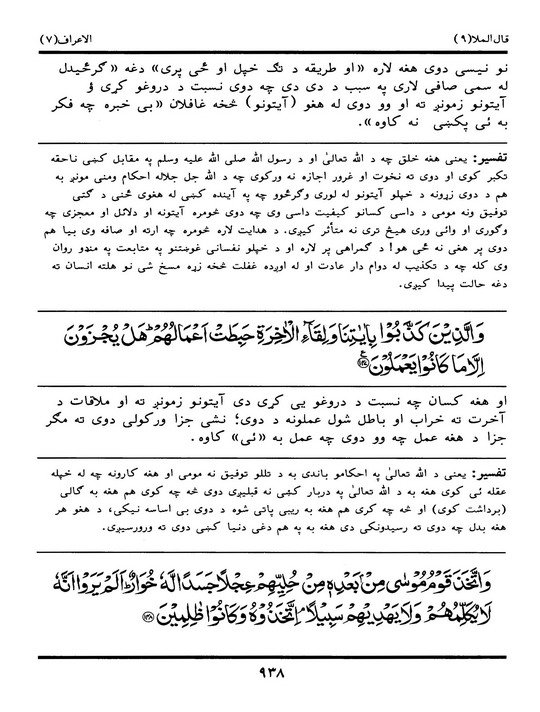 قال الملا(۹)
الاعراف(۷)
نو نیسی دوی هغه لاره «او طریقه د تگ خپل او ځی پری» دغه «گرځیدل
له سمی صافی لاری په سبب د دی دی چه دوی نسبت د دروغو کړی ؤ
آیتونو زمونږ ته او وو دوی له هغو (آیتونو) څخه غافلان «بی خبره چه فکر
به ئی پکښی نه کاوه».
تفسیر: یعنی هغه خلق چه د الله تعالیٰ او د رسول الله صلی الله علیه وسلم په مقابل کښی ناحقه
تکبر کوی او دوی ته نخوت او غرور اجازه نه ورکوی چه د الله جل جلاله احکام ومنی مونږ به
هم د دوی زړونه د خپلو آیتونو له لوری وگرځوو چه په آینده کښی له هغوی ځنی د گټی
توفیق ونه مومی د داسی کسانو کیفیت داسی وی چه دوی څومره آیتونه او دلائل او معجزی چه
وگوری او وائی وری هیڅ تری نه متأثر کیږی. د هدایت لاره څومره چه ارته او صافه وی بیا هم
دوی پر هغی نه ځی هو! د گمراهی پر لاره او د خپلو نفسانی غوښتنو په متابعت په منډو روان
وی کله چه د تکذیب له دوام دار عادت او له اوږده غفلت څخه زړه مسخ شی نو هلته انسان ته
دغه حالت پیدا کیږی.
وَالَّذِيْنَ كَذَّبُوْا بِاٰيٰتِنَا وَلِقَآءِ الْاٰخِرَةِ حَبِطَتْ اَعْمَالُهُمْ ؕ هَلْ يُجْزَوْنَ
اِلَّا مَا كَانُوْا يَعْمَلُوْنَ
او هغه کسان چه نسبت د دروغو یی کړی دی آیتونو زمونږ ته او ملاقات د
آخرت ته خراب او باطل شول عملونه د دوی؛ نشی جزا ورکولی دوی ته مگر
جزا د هغه عمل چه وو دوی چه عمل به «ئی» کاوه.
تفسیر: یعنی د الله تعالیٰ په احکامو باندی به د تللو توفیق نه مومی او هغه کارونه چه له خپله
عقله ئی کوی هغه به د الله تعالیٰ په دربار کښی نه قبلیږی دوی څه چه کوی هم هغه به گالی
(برداشت کوی) او څه چه کری هم هغه به ریبی پاتی شوه د دوی بی اساسه نیکی، د هغو هر
هغه بدل چه دوی ته رسیدونکی دی هغه به په هم دغی دنیا کښی دوی ته ورورسیږی.
وَاتَّخَذَ قَوْمُ مُوْسٰى مِنْۢ بَعْدِهٖ مِنْ حُلِيِّهِمْ عِجْلًا جَسَدًا لَّهٗ خُوَارٌ ؕ اَلَمْ يَرَوْا اَنَّهٗ
لَا يُكَلِّمُهُمْ وَلَا يَهْدِيْهِمْ سَبِيْلًا ۘ اِتَّخَذُوْهُ وَكَانُوْا ظٰلِمِيْنَ
۹۳۸